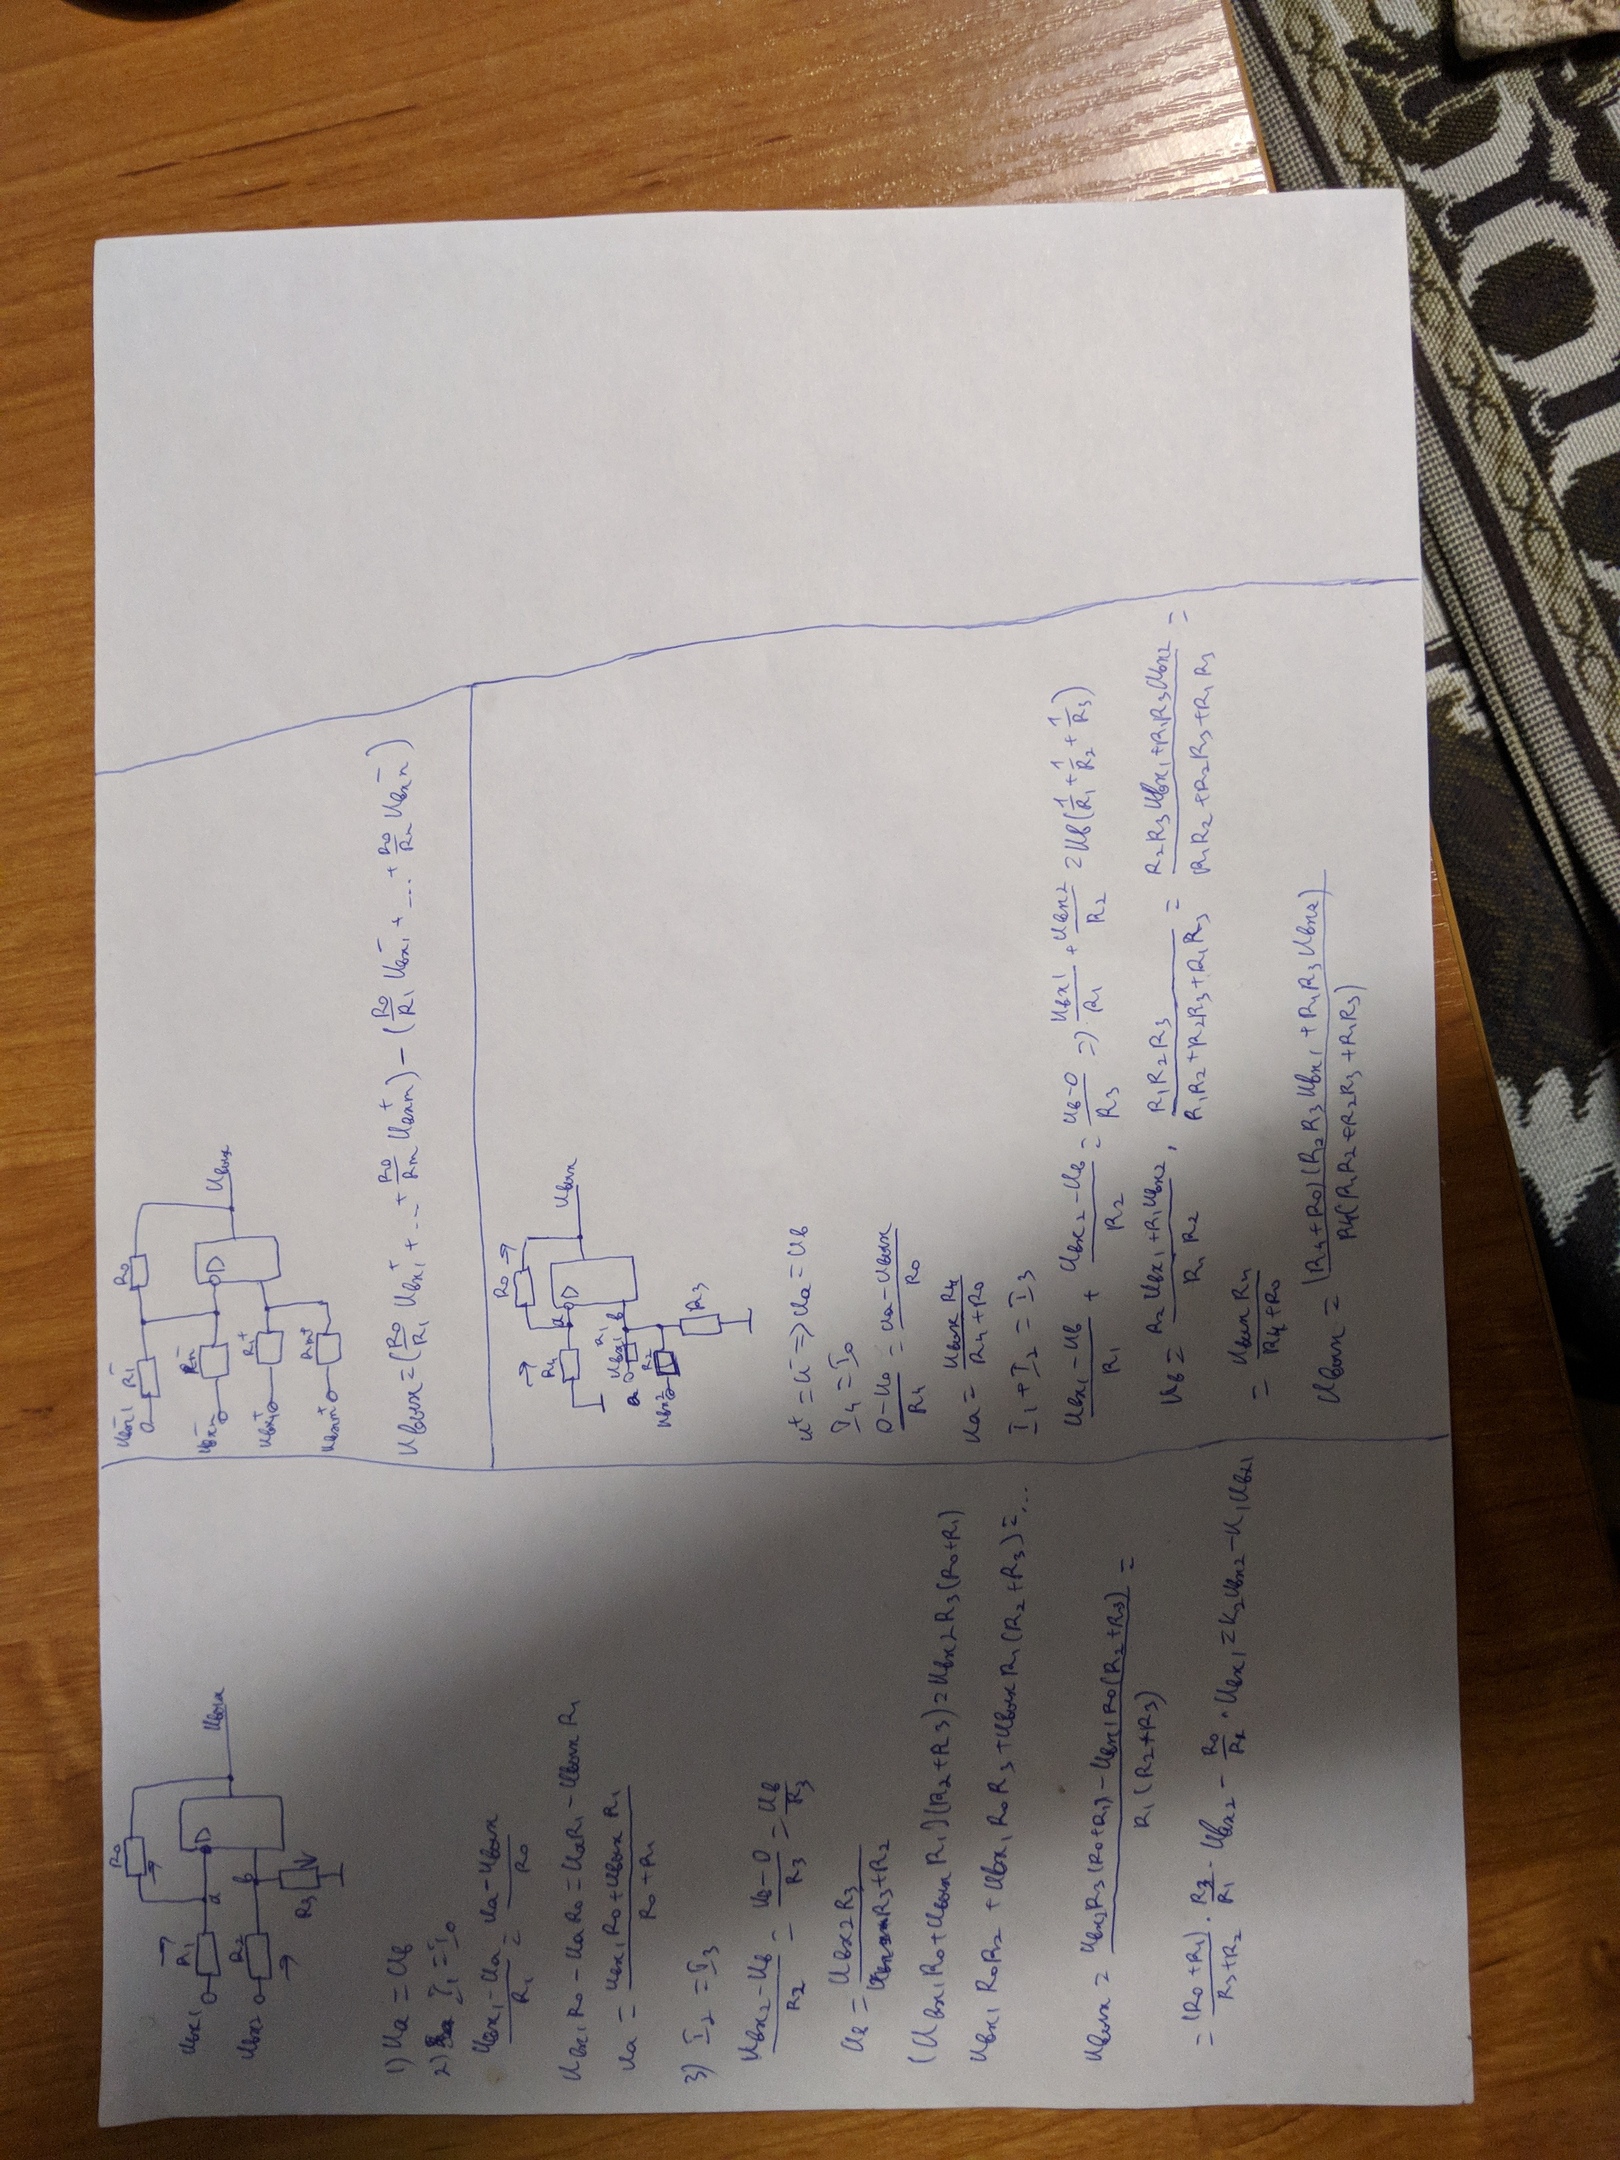 R₀
Uвх1 R₁ a D Uвых
Uвх2 R₂ в
R₃
1) Uа = Uв
2) I₁ = I₀
(Uвх₁ - Uа)/R₁ = (Uа - Uвых)/R₀
Uвх₁R₀ - UаR₀ = UаR₁ - UвыхR₁
Uа = (Uвх₁R₀ + UвыхR₁)/(R₀ + R₁)
3) I₂ = I₃
(Uвх₂ - Uв)/R₂ = (Uв - 0)/R₃ = Uв/R₃
Uв = Uвх2R₃/(R₃ + R₂)
(Uвх₁R₀ + UвыхR₁)(R₂ + R₃) = Uвх2R₃(R₀ + R₁)
Uвх₁R₀R₂ + Uвх₁R₀R₃ + UвыхR₁(R₂ + R₃) = ...
Uвых = (Uвх₂R₃(R₀ + R₁) - Uвх1R₀(R₂ + R₃))/(R₁(R₂ + R₃)) =
= (R₀ + R₁)/(R₃ + R₂) · R₃/R₁ · Uвх2 - R₀/R₁ · Uвх₁ = K₂Uвх2 - K₁Uвх1
Uвх1⁻ R₁⁻ R₀
Uвхn⁻ Rn⁻ D Uвых
Uвх1⁺ R₁⁺
Uвхm⁺ Rm⁺
Uвых = (R₀/R₁ Uвх₁⁺ + ... + R₀/Rm Uвхm⁺) - (R₀/R₁ Uвх₁⁻ + ... + R₀/Rn Uвхn⁻)
R₀
R₄ a D Uвых
Uвх1 R₁ в
Uвх2 R₂
R₃
U⁺ = U⁻ => Uа = Uв
I₄ = I₀
(0 - Uа)/R₄ = (Uа - Uвых)/R₀
Uа = UвыхR₄/(R₄ + R₀)
I₁ + I₂ = I₃
(Uвх₁ - Uв)/R₁ + (Uвх₂ - Uв)/R₂ = (Uв - 0)/R₃ => Uвх1/R₁ + Uвх2/R₂ = Uв(1/R₁ + 1/R₂ + 1/R₃)
Uв = (R₂Uвх₁ + R₁Uвх2)/(R₁R₂) · R₁R₂R₃/(R₁R₂ + R₂R₃ + R₁R₃) = (R₂R₃Uвх₁ + R₁R₃Uвх2)/(R₁R₂ + R₂R₃ + R₁R₃) =
= UвыхR₄/(R₄ + R₀)
Uвых = (R₄ + R₀)(R₂R₃Uвх₁ + R₁R₃Uвх2)/(R₄(R₁R₂ + R₂R₃ + R₁R₃))